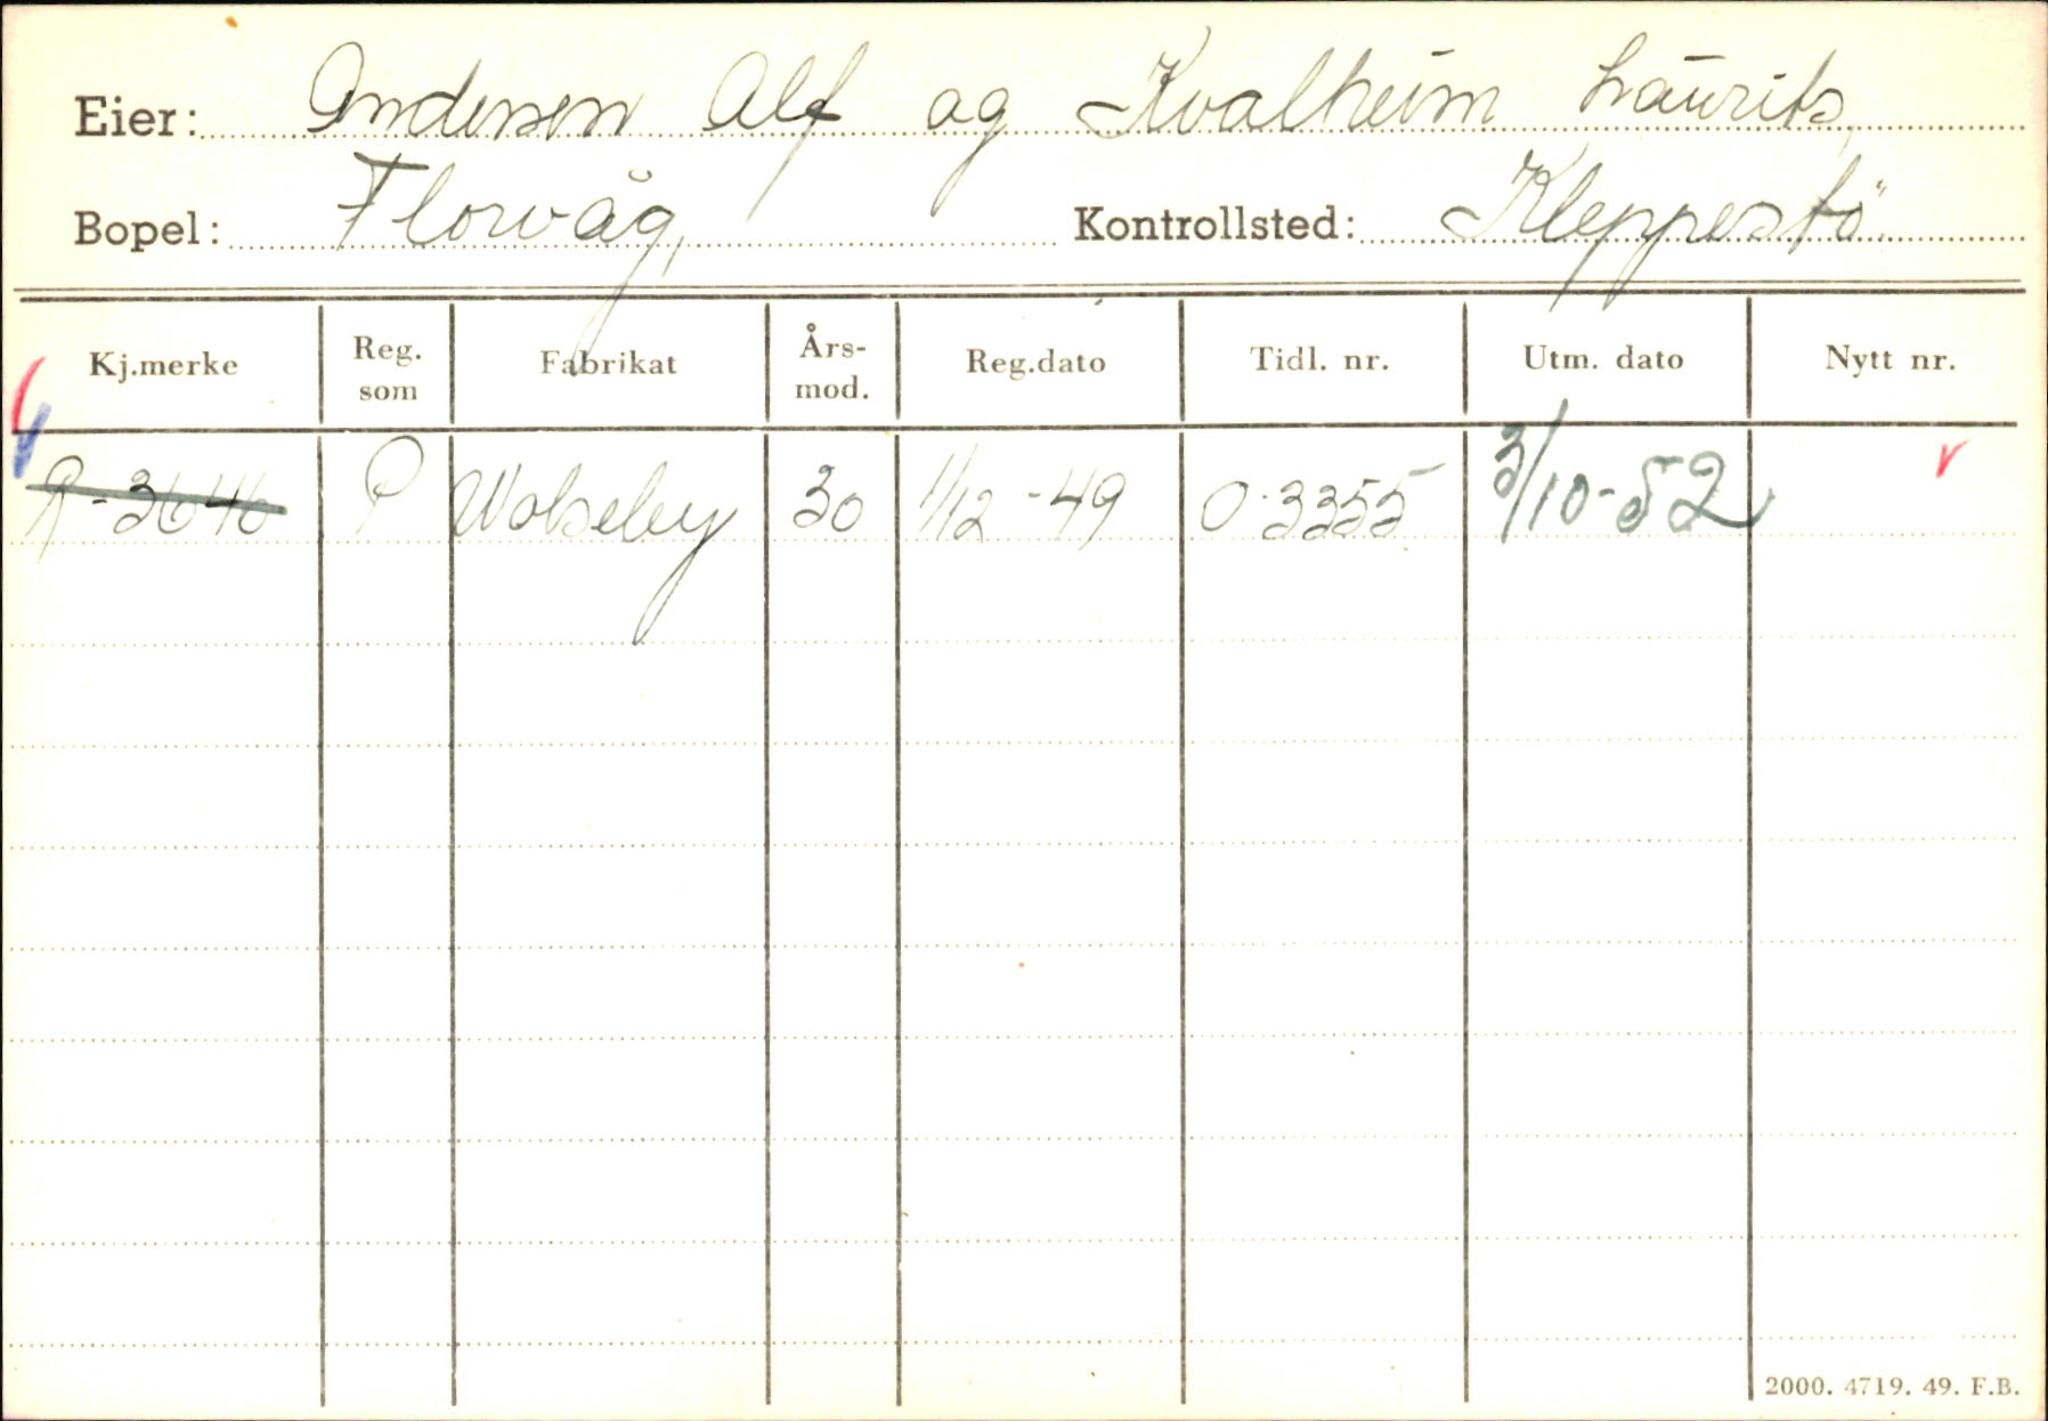 Eier: Andersen Alf og Kvalheim Laurits,
Bopel: Florvåg, Kontrollsted: Kleppestö.
Kj.merke Reg. som Fabrikat Års-mod. Reg.dato Tidl. nr. Utm. dato Nytt nr.
R-3646 P Wolseley 30 1/12-49 O-3355 3/10-52
2000. 4719. 49. F.B.